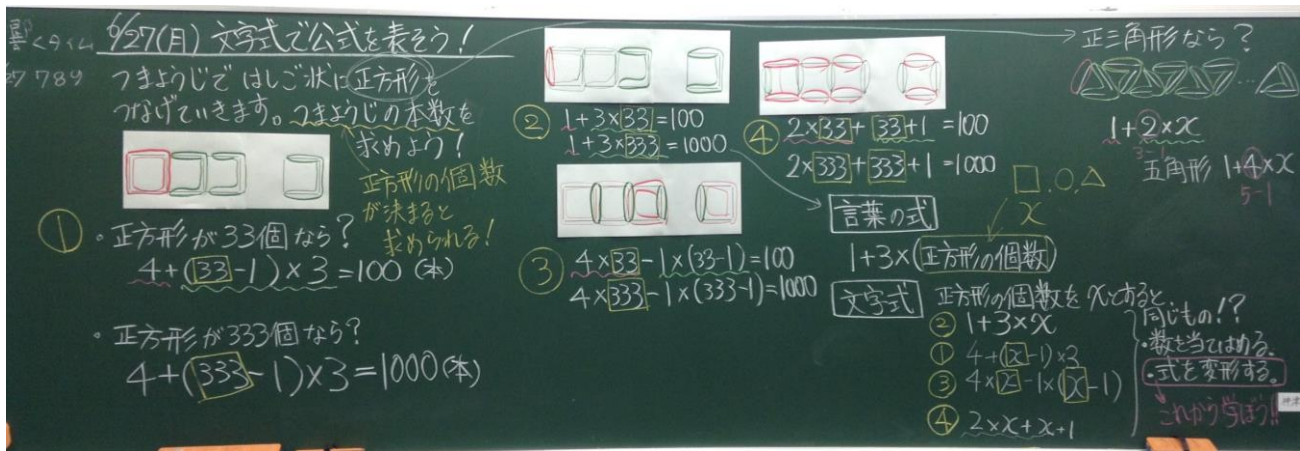 くタイム
6/27(月) 文字式で公式を表そう!
27 78ｸ
つまようじで はしご状に正方形を
つなげていきます。つまようじの本数を
求めよう!
正方形の個数
が決まると
求められる!
①
・正方形が33個なら?
4+(33-1)×3=100 (本)
・正方形が333個なら?
4+(333-1)×3=1000(本)
②
1+3×33=100
1+3×333=1000
③
4×33-1×(33-1)=100
4×333-1×(333-1)=1000
④
2×33+33+1=100
2×333+333+1=1000
□.○.△
x
言葉の式
1+3×(正方形の個数)
文字式
正方形の個数をxとすると
② 1+3×x
① 4+(x-1)×3
③ 4×x-1×(x-1)
④ 2×x+x+1
同じもの!?
・数を当てはめる.
・式を変形する。
これから学ぼう!!
正三角形なら?
…
1+2×x
3-1
五角形 1+4×x
5-1